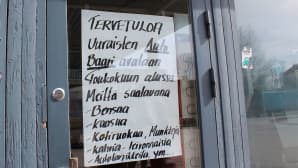 TERVETULOA
Uuraisten Auto
Baari avataan
Toukokuun alussa
Meiltä saatavana
- Bensaa
- Kaasua
- Kotiruokaa, Munkkeja
- Kahvia - virvonnaisia
- Autotarvikkeita ym.